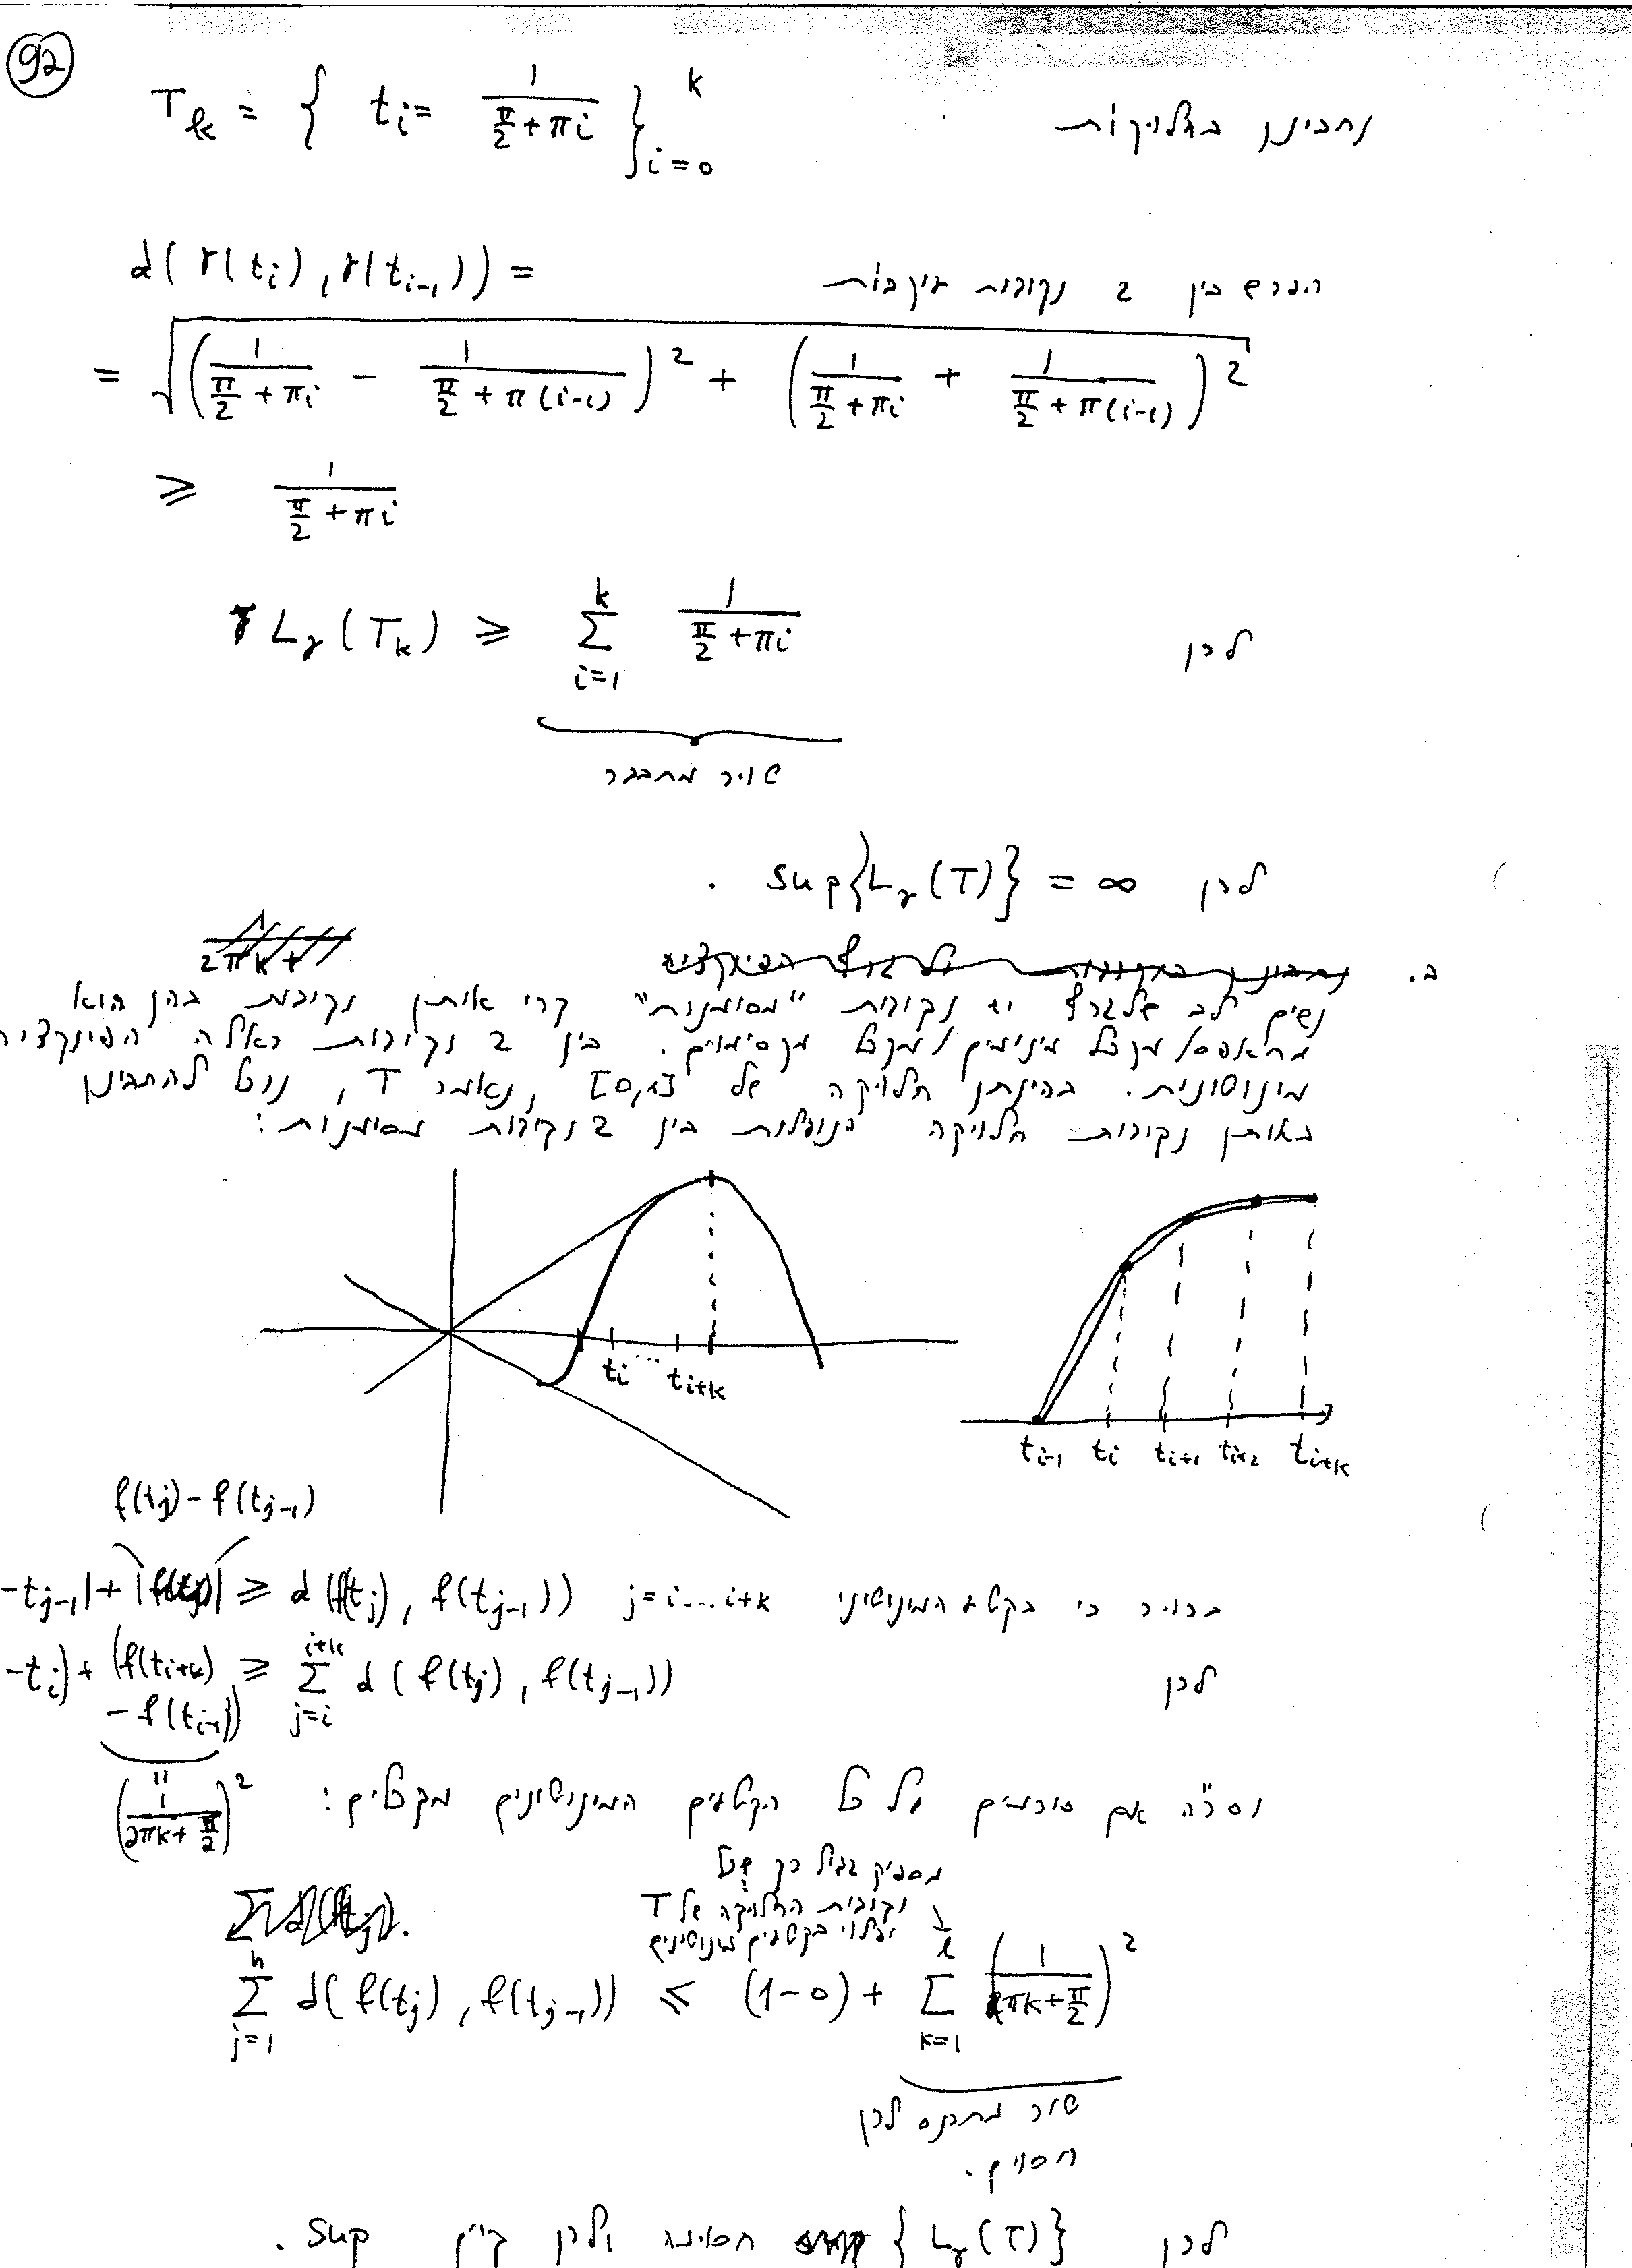 92
נתבונן בחלוקות T_k = { t_i = 1/(π/2 + πi) }_{i=0}^{k}
הפרש בין 2 נקודות עוקבות d(γ(t_i), γ(t_{i-1})) =
= √( (1/(π/2 + πi) - 1/(π/2 + π(i-1)))² + (1/(π/2 + πi) + 1/(π/2 + π(i-1)))² )
≥ 1/(π/2 + πi)
לכן L_γ(T_k) ≥ Σ_{i=1}^{k} 1/(π/2 + πi)
טור מתבדר
לכן sup{L_γ(T)} = ∞ .
ב.
נשים לב שלגרף יש נקודות "מסומנות" קרי אותן נקודות בהן הוא
מתאפס/מקבל מינימום/מקבל מקסימום. בין 2 נקודות כאלה הפונקציה
מונוטונית. בהינתן חלוקה של [0,1], נאמר T, נוכל להתבונן
באותן נקודות חלוקה הנופלות בין 2 נקודות מסומנות:
t_i ... t_{i+k}
t_{i-1} t_i t_{i+1} t_{i+2} t_{i+k}
f(t_j) - f(t_{j-1})
ברור כי בקטע המונוטוני j = i...i+k -t_{j-1}| + | | ≥ d(f(t_j), f(t_{j-1}))
לכן -t_i) + (f(t_{i+k}) - f(t_{i-1})) ≥ Σ_{j=i}^{i+k} d(f(t_j), f(t_{j-1}))
(1/(2πk + π/2))²
וסה"כ אם סוכמים על כל הקטעים המונוטונים מקבלים:
מספיק גדול כך שכל
נקודות החלוקה של T
בקטעים מונוטונים
Σ_{j=1}^{n} d(f(t_j), f(t_{j-1})) ≤ (1-0) + Σ_{k=1}^{l} (1/(πk + π/2))²
טור מתכנס לכן
חסום.
לכן {L_γ(T)} חסומה ולכן קיים sup .